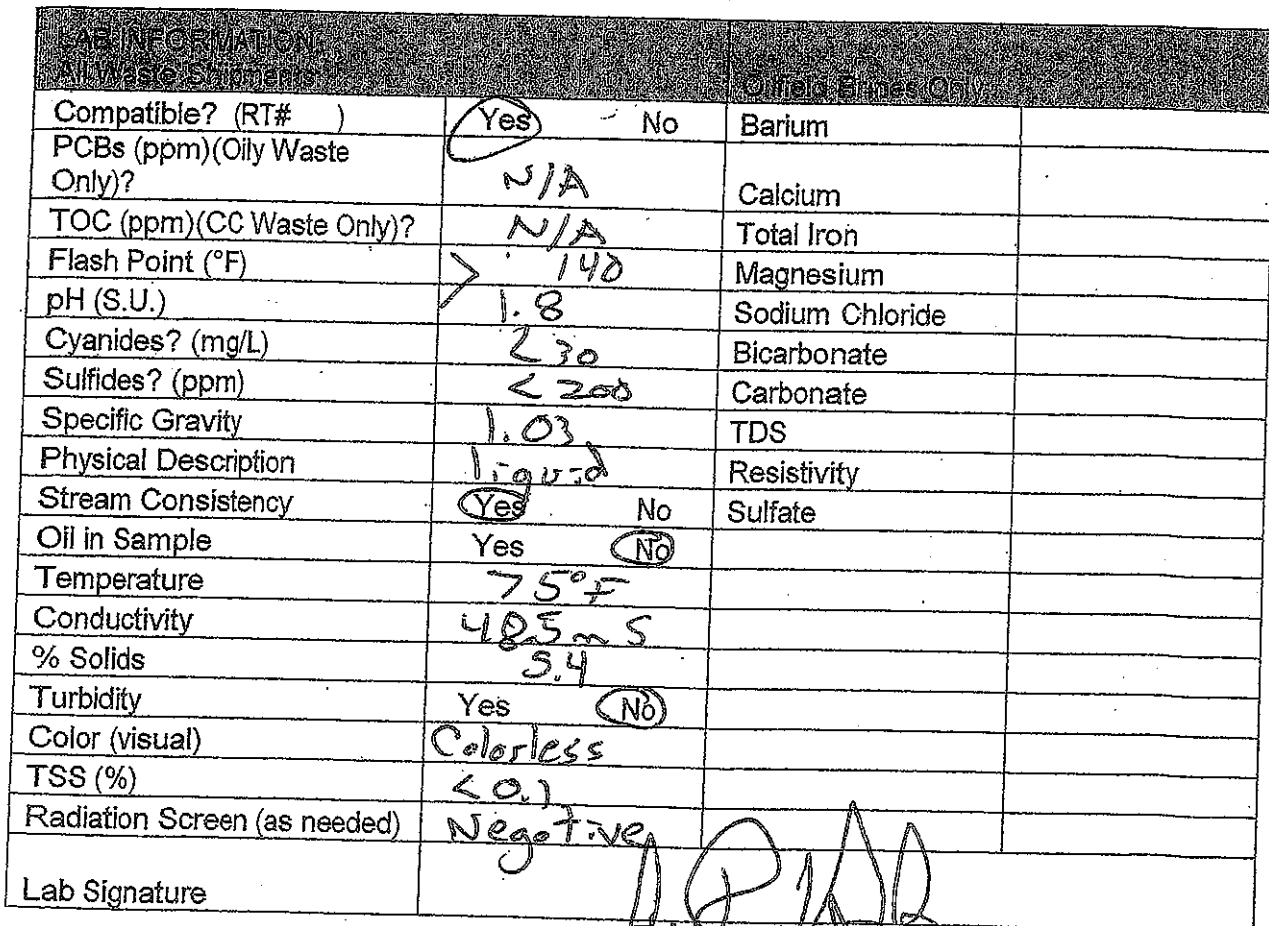 LAB INFORMATION:
All Waste Shipments Oilfield Brines Only
Compatible? (RT# ) Yes No Barium
PCBs (ppm)(Oily Waste
Only)? N/A Calcium
TOC (ppm)(CC Waste Only)? N/A Total Iron
Flash Point (°F) > 140 Magnesium
pH (S.U.) 1.8 Sodium Chloride
Cyanides? (mg/L) <30 Bicarbonate
Sulfides? (ppm) < 200 Carbonate
Specific Gravity 1.03 TDS
Physical Description liquid Resistivity
Stream Consistency Yes No Sulfate
Oil in Sample Yes No
Temperature 75°F
Conductivity 48.5 mS
% Solids 5.4
Turbidity Yes No
Color (visual) Colorless
TSS (%) <0.1
Radiation Screen (as needed) Negative
Lab Signature